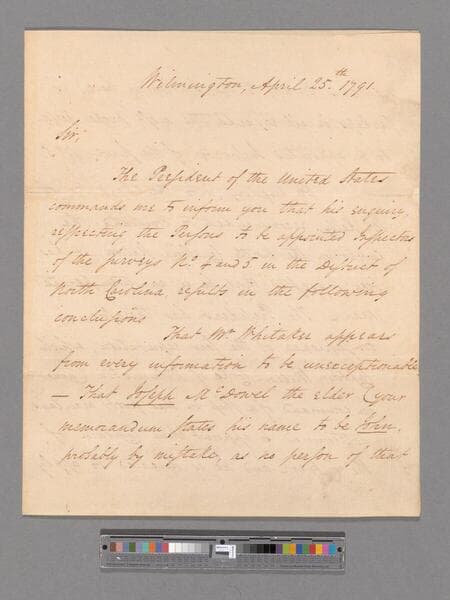 Wilmington, April 25.th 1791.
Sir,
The President of the United States
commands me to inform you that his enquiry,
respecting the Persons to be appointed Inspectors
of the surveys No. 4 and 5 in the District of
North Carolina results in the following
conclusions
That Mr. Whitaker appears
from every information to be unexceptionable
— That Joseph McDowel the elder (your
memorandum states his name to be John,
probably by mistake, as no person of that